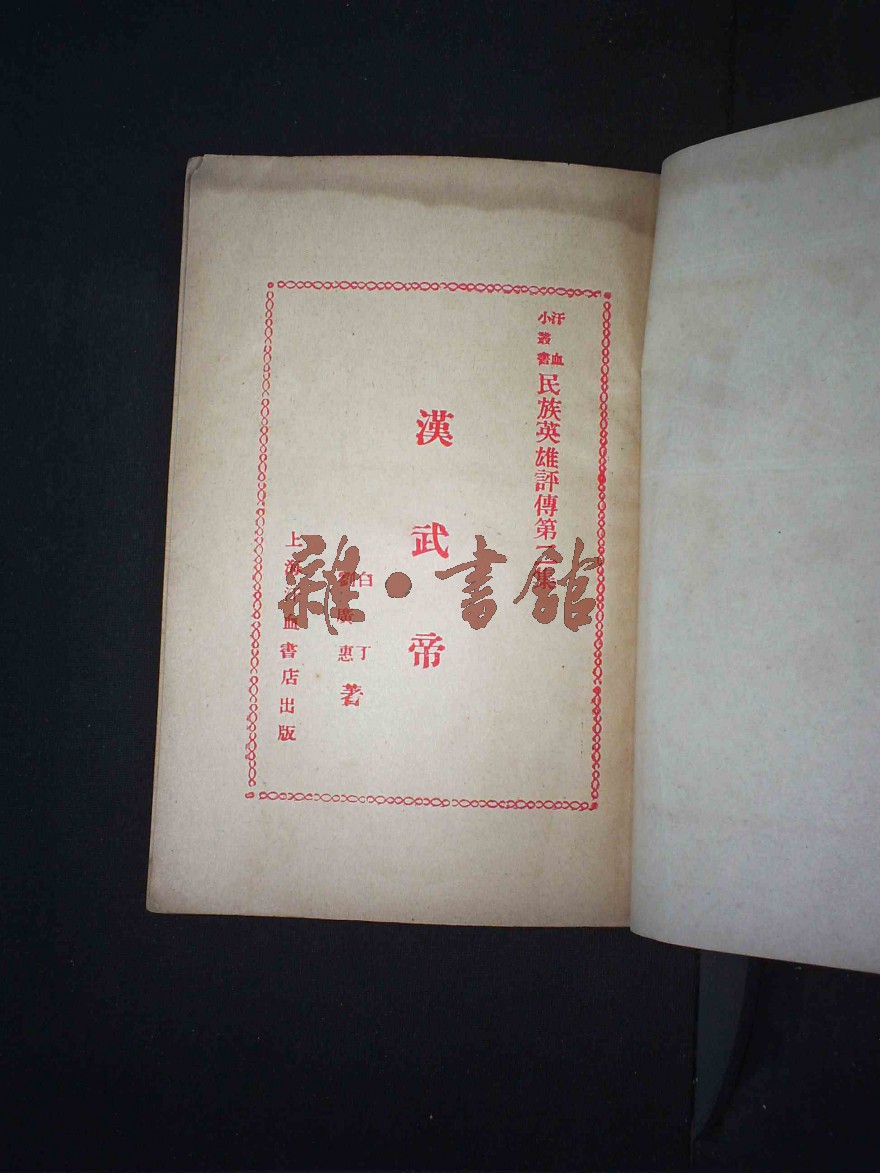 汗血
小叢書
民族英雄評傳第二集
漢武帝
白丁
劉廣惠
著
上海汗血書店出版
雜·書館